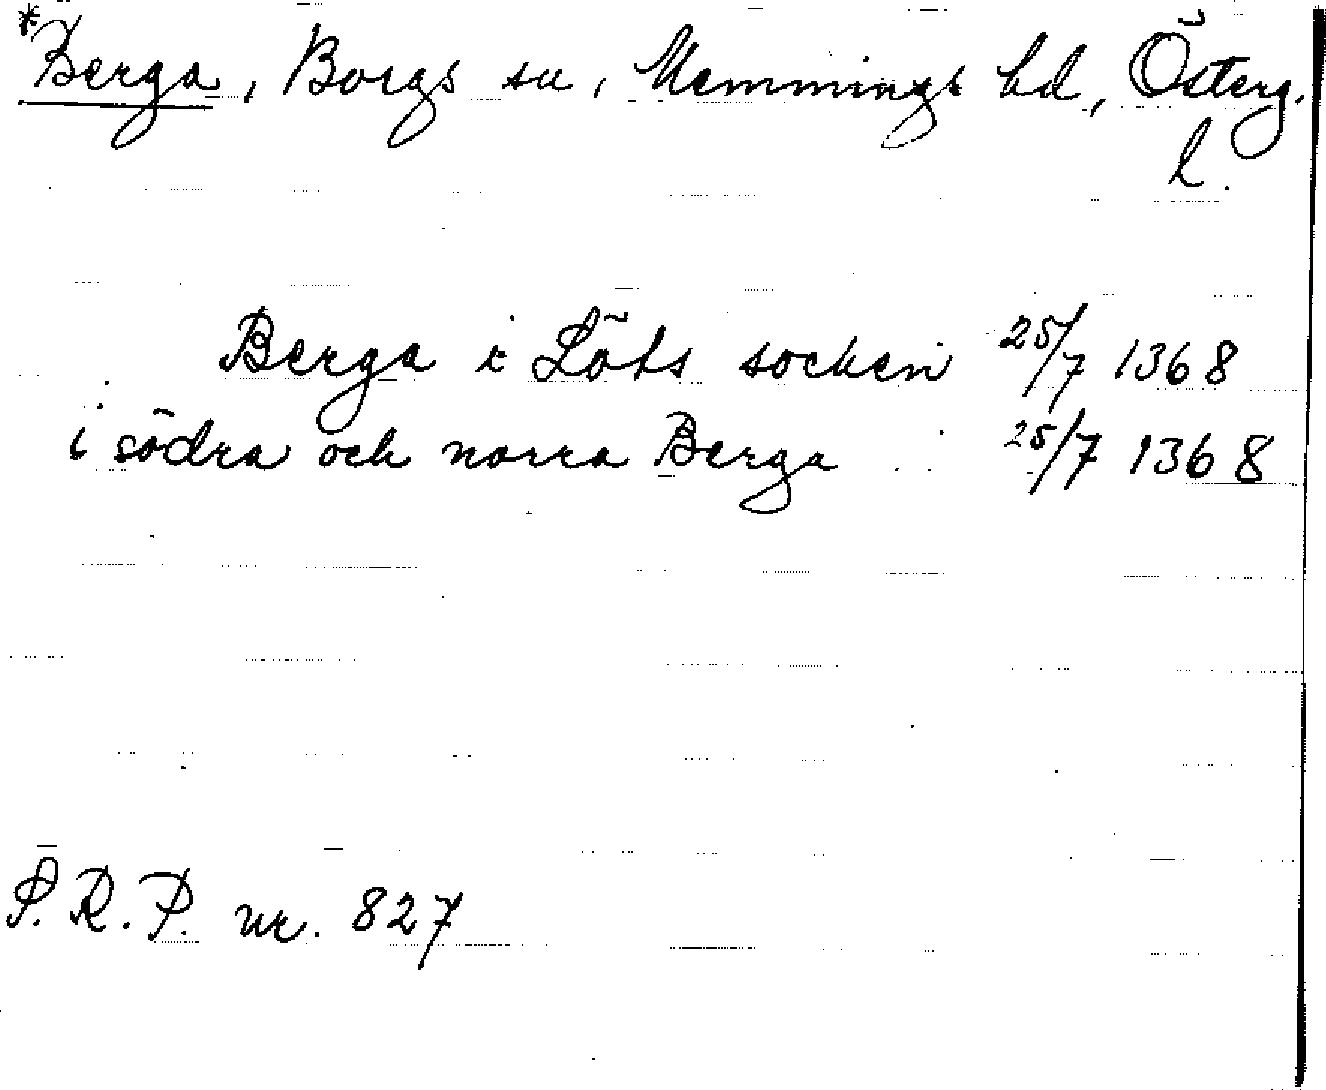 *Berga, Borgs sn, Memmings hd, Österg.
l.
Berga i Löts socken 25/7 1368
i södra och norra Berga 25/7 1368
P.R.P. nr. 827